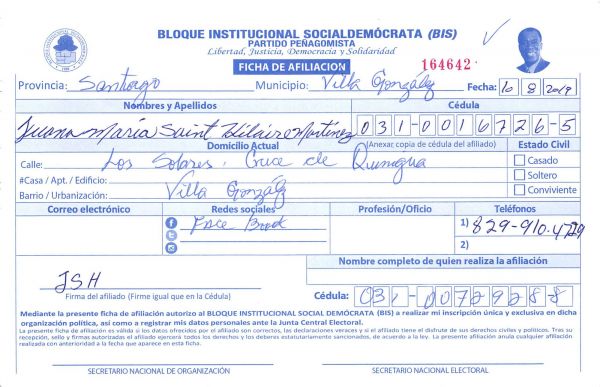 BLOQUE INSTITUCIONAL SOCIALDEMÓCRATA (BIS)
PARTIDO PEÑAGOMISTA
Libertad, Justicia, Democracia y Solidaridad
FICHA DE AFILIACION 164642
Provincia: Santiago Municipio: Villa González Fecha: 10 8 2019
Nombres y Apellidos Cédula
Juana María Saint Hilaire Martínez 031-0016726-5
Domicilio Actual (Anexar, copia de cédula del afiliado) Estado Civil
Calle: Los Solares, Cruce de Quinigua Casado
#Casa / Apt. / Edificio: Soltero
Barrio / Urbanización: Villa González Conviviente
Correo electrónico Redes sociales Profesión/Oficio Teléfonos
Face Book 1) 829-910-4729
2)
Nombre completo de quien realiza la afiliación
JSH
Firma del afiliado (Firme igual que en la Cédula) Cédula: 031-00729288
Mediante la presente ficha de afiliación autorizo al BLOQUE INSTITUCIONAL SOCIAL DEMÓCRATA (BIS) a realizar mi inscripción única y exclusiva en dicha
organización política, así como a registrar mis datos personales ante la Junta Central Electoral.
La presente ficha de afiliación es válida si los datos ofrecidos por el afiliado son correctos, las declaraciones veraces y si el afiliado tiene el disfrute de sus derechos civiles y políticos. Tras su
recepción, sello y firmas autorizadas el afiliado ejercerá todos los derechos y los deberes estatutariamente sancionados, de acuerdo a la ley. La presente afiliación anula cualquier afiliación
realizada con anterioridad a la fecha que aparece en esta ficha.
SECRETARIO NACIONAL DE ORGANIZACIÓN SECRETARIO NACIONAL ELECTORAL